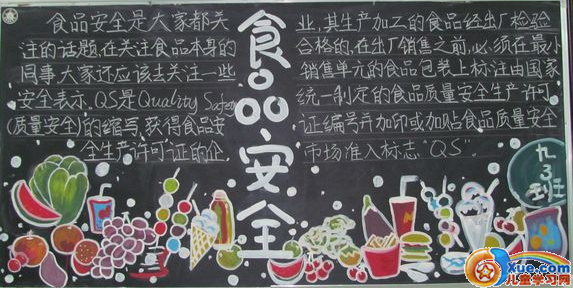 食品安全是大家都关
注的话题,在关注食品本身的
同事,大家还应该去关注一些
安全表示.QS是Quality Safety
(质量安全)的缩写,获得食品安
全生产许可证的企
食品安全
业,其生产加工的食品经出厂检验
合格的,在出厂销售之前,必须在最小
销售单元的食品包装上标注由国家
统一制定的食品质量安全生产许可
证编号并加印或加贴食品质量安全
市场准入标志"QS".
九3班
Xue.com
儿童学习网